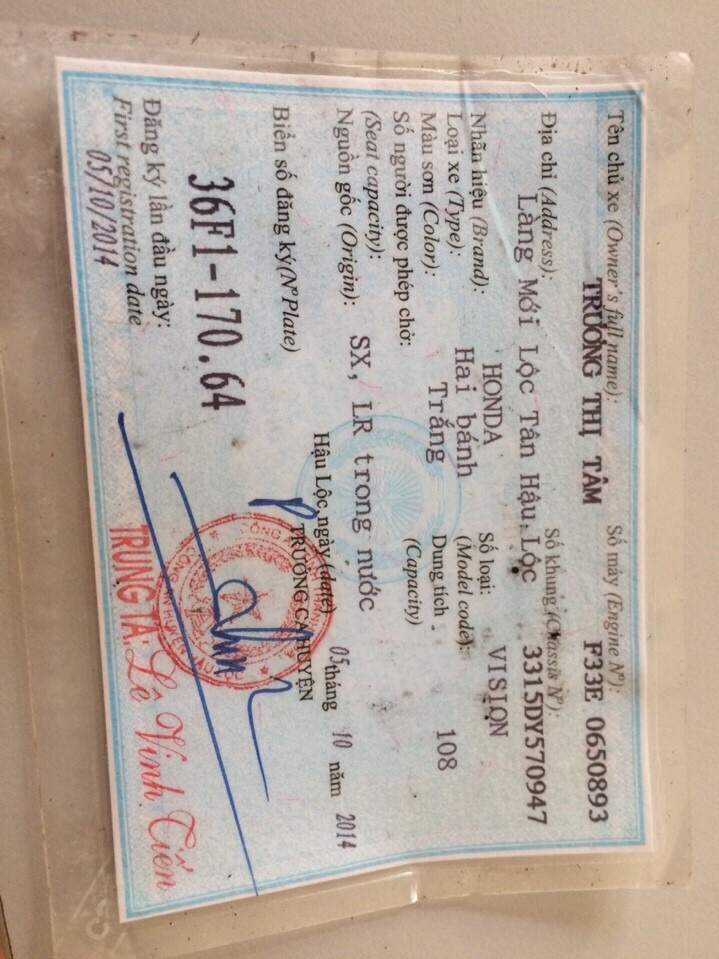 Tên chủ xe (Owner's full name): Số máy (Engine Nº):
TRƯƠNG THỊ TÂM F33E 0650893
Địa chỉ (Address): Số khung (Chassis Nº):
Làng Mới Lộc Tân Hậu Lộc 3315DY570947
Nhãn hiệu (Brand): HONDA Số loại: VISION
Loại xe (Type): Hai bánh (Model code):
Màu sơn (Color): Trắng Dung tích 108
Số người được phép chở: (Capacity)
(Seat capacity):
Nguồn gốc (Origin): SX, LR trong nước
Hậu Lộc, ngày (date) 05 tháng 10 năm 2014
Biển số đăng ký (Nº Plate) TRƯỞNG CA HUYỆN
36F1-170.64
Đăng ký lần đầu ngày:
First registration date
05/10/2014
TRUNG TÁ: Lê Vinh Tiến